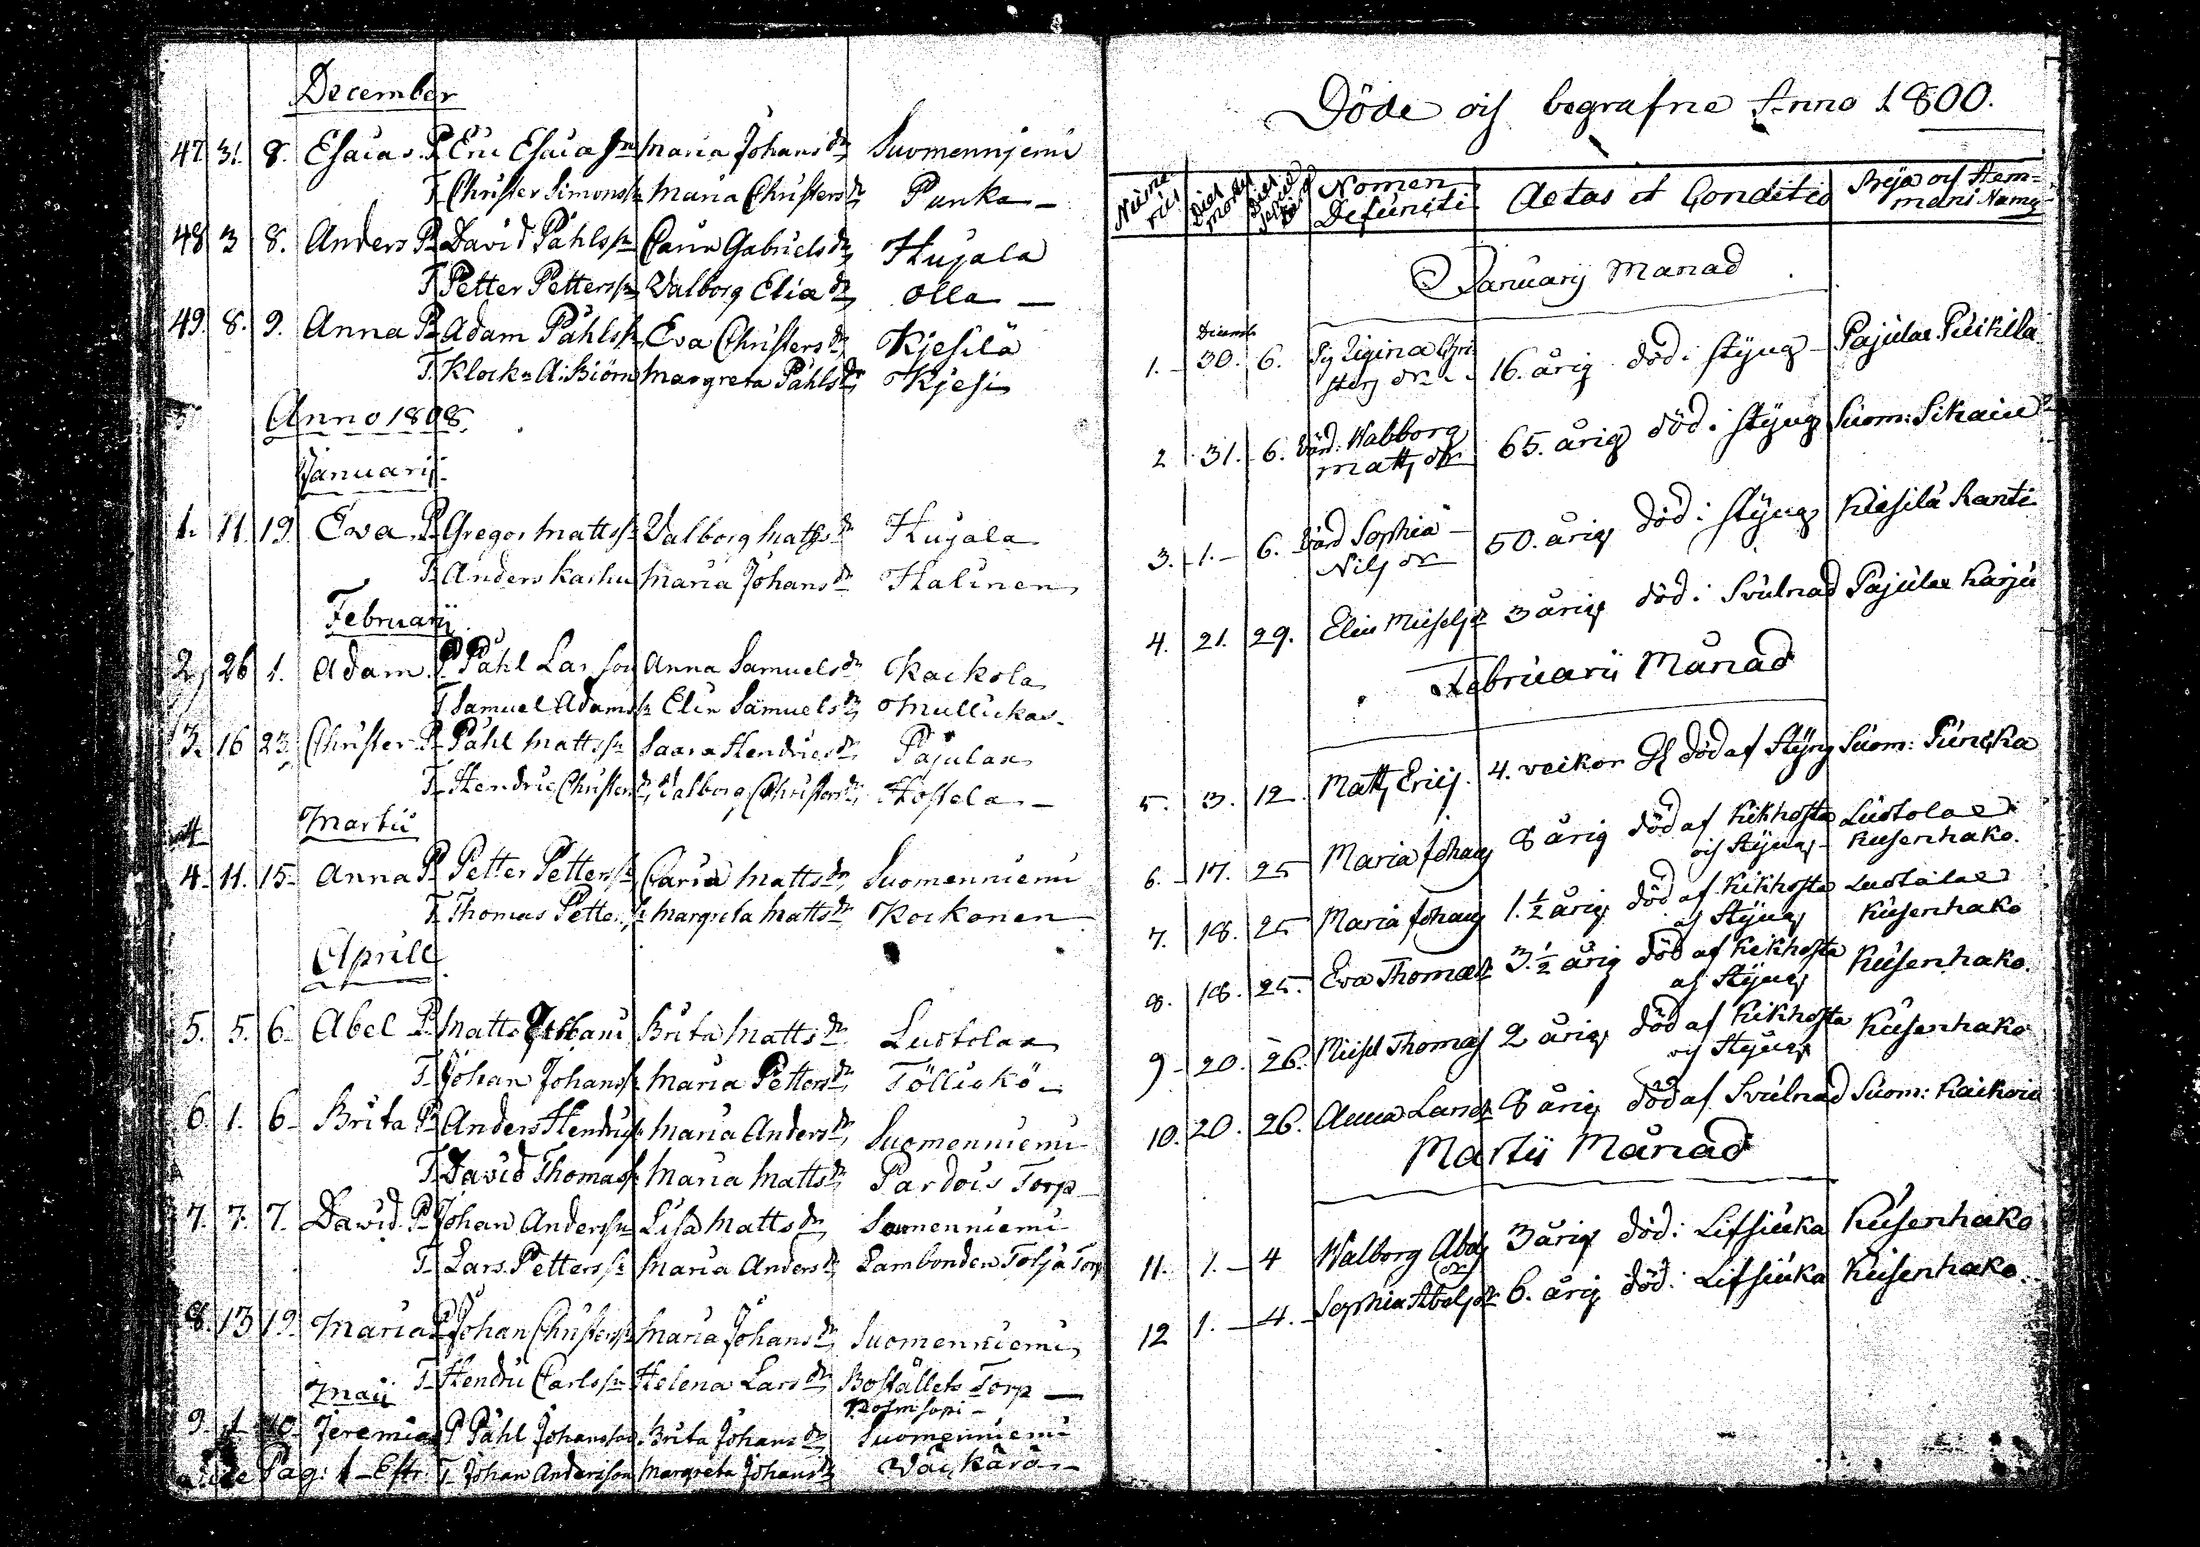 December
47. 31. 8. Esaias. P. Eric Esaiasson Maria Johansdr Suomenniemi
T. Christer Simonss: Maria Christersdr Punka
48 3 8. Anders P. David Påhlss: Carin Gabrielsdr Hujala
T. Petter Petterss: Valborg Eliædr Olla
49. 8. 9. Anna P. Adam Påhlss: Eva Christersdr Kjesilä
T. Klock: A: Biörn Margreta Påhlsdr Kjesi
Anno 1808.
Januarii.
1. 11. 19. Eva P. Gregor Mattss: Valborg Mattsdr Hujala
T. Anders Karhu Maria Johansdr Halinen
Februarii
2. 26 1. Adam. P. Påhl Larsson Anna Samuelsdr Kackola
T. Samuel Adamss: Elin Samuelsdr Mullickas
3. 16 23 Christer P. Påhl Mattss: Saara Hendricsdr Pajulax
T. Hendric Christers: Valborg Christersdr Hostela
4
Martii
4. 11. 15. Anna P. Petter Petterss: Maria Mattsdr Suomenniemi
T. Thomas Petterss: Margreta Mattsdr Kockonen
Aprill
5. 5. 6. Abel P. Matts Brita Mattsdr Lustolax
T. Johan Johanss: Maria Pettersdr Töllickö
6. 1. 6. Brita P. Anders Hendricss: Maria Andersdr Suomenniemi
T. David Thomass: Maria Mattsdr Pardois Torp
7. 7. 7. David. P. Johan Anderss: Lisa Mattsdr Suomenniemi
T. Lars Petterss: Maria Andersdr Lambonden Tolja Torp
8. 13 19. Maria P. Johan Christerss: Maria Johansdr Suomenniemi
T. Hendric Carlss: Helena Larsdr Boställets Torp
Maij
9. 1 10. Jeremias P. Påhl Johansson Brita Johansdr Suomenniemi
Vide Pag: 1 Eftr. T. Johan Andersson Margreta Johansdr
Döde och begrafne Anno 1800.
Nume rus Dies mortis Dies Sepult Nomen Defuncti Aetas et Conditio Byja och Hemmans Namn
Januarij Månad
Decemb
1. 30. 6. Pig Regina Christers dr 16. årig död i styng Pajulax Pückilä
2 31. 6. Värd: Walborg Matts dr 65. årig död i styng Suom: Sikain
3. 1. 6. Värd Sophia Nils dr 50. årig död i styng Kiesilä Ranti
4. 21. 29. Elin Michelsdr 3 årig död i Svulnad Pajulax Karju
Februarii Månad
5. 3. 12. Matts Erics. 4. veckor död af Styng Suom: Puncka
6. 17. 25 Maria Johans 8 årig död af kikhosta och Styng Lustolax Kusenhako.
7. 18. 25 Maria Johans 1. ½ årig död af kikhosta och Styng Lustolax Kusenhako
8. 18. 25. Eva Thomædr 3. ½ årig död af kikhosta och Styng Kusenhako.
9 20. 26. Michel Thomæs 2 årig död af kikhosta och Styng Kusenhako
10. 20. 26. Anna Larsdr 8 årig död af Svulnad Suom:
Martii Månad
11. 1. 4 Walborg Abels dr 3 årig död i Lifsiuka Kusenhako
12 1. 4. Sophia Abelsdr 6. årig död i Lifsiuka Kusenhako.